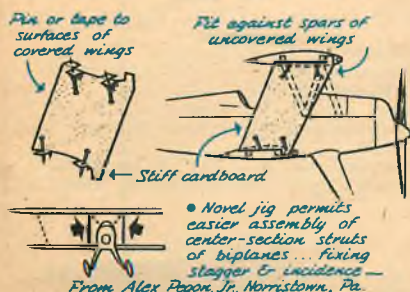 Pin or tape to
surfaces of
covered wings
Fit against spars of
uncovered wings
Stiff cardboard
• Novel jig permits
easier assembly of
center-section struts
of biplanes... fixing
stagger & incidence —
From Alex Pepon Jr. Norristown, Pa.